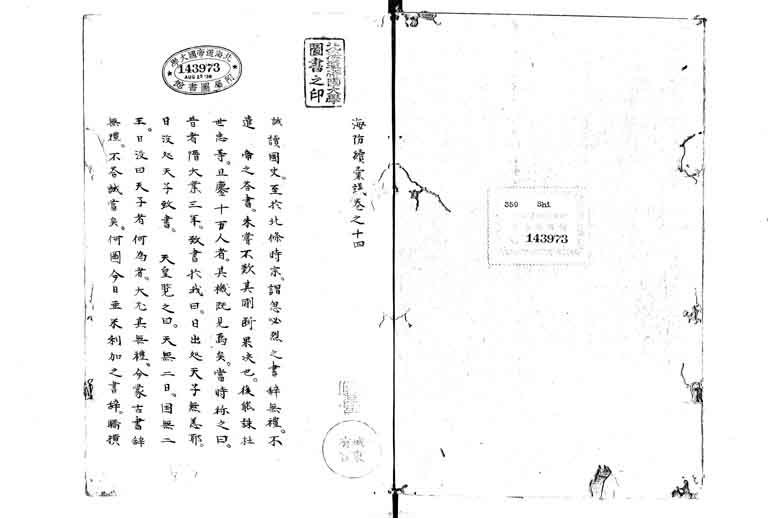 350 Shi
143973
北海道帝國大學
143973
AUG 22 '38
附屬圖書館
北海道帝國大學
圖書之印
海防續彙議卷之十四
誠讀國史。至於北條時宗。謂忽必烈之書辭無禮。不
遣 帝之答書。未嘗不歎其剛斷果決也。後能誅杜
世忠等。且鏖十萬人者。其機既見焉矣。當時称之曰。
昔者隋大業三年。致書於我曰。日出処天子無恙耶。
日没処天子致書。 天皇覧之曰。天無二日。國無二
王。日没曰天子者何為者。大尤其無禮。今蒙古書辞
無禮。不答誠當矣。何圖今日亜米利加之書辞。驕横